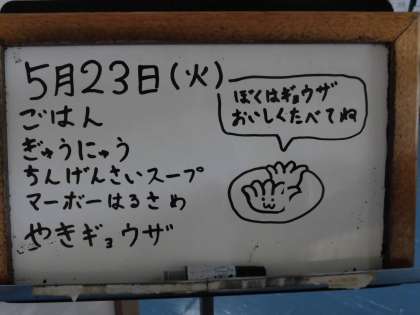 5月23日(火)
ごはん
ぎゅうにゅう
ちんげんさいスープ
マーボーはるさめ
やきギョウザ
ぼくはギョウザ
おいしくたべてね